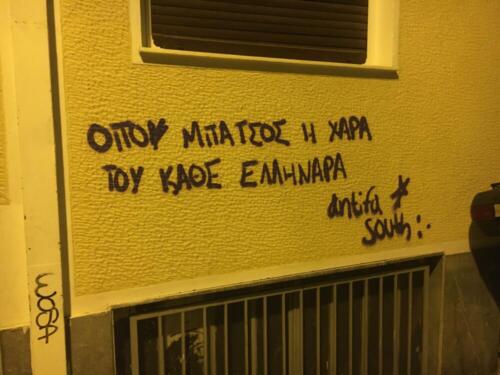 ΟΠΟΥ ΜΠΑΤΣΟΣ Η ΧΑΡΑ
ΤΟΥ ΚΑΘΕ ΕΛΛΗΝΑΡΑ
antifa
south